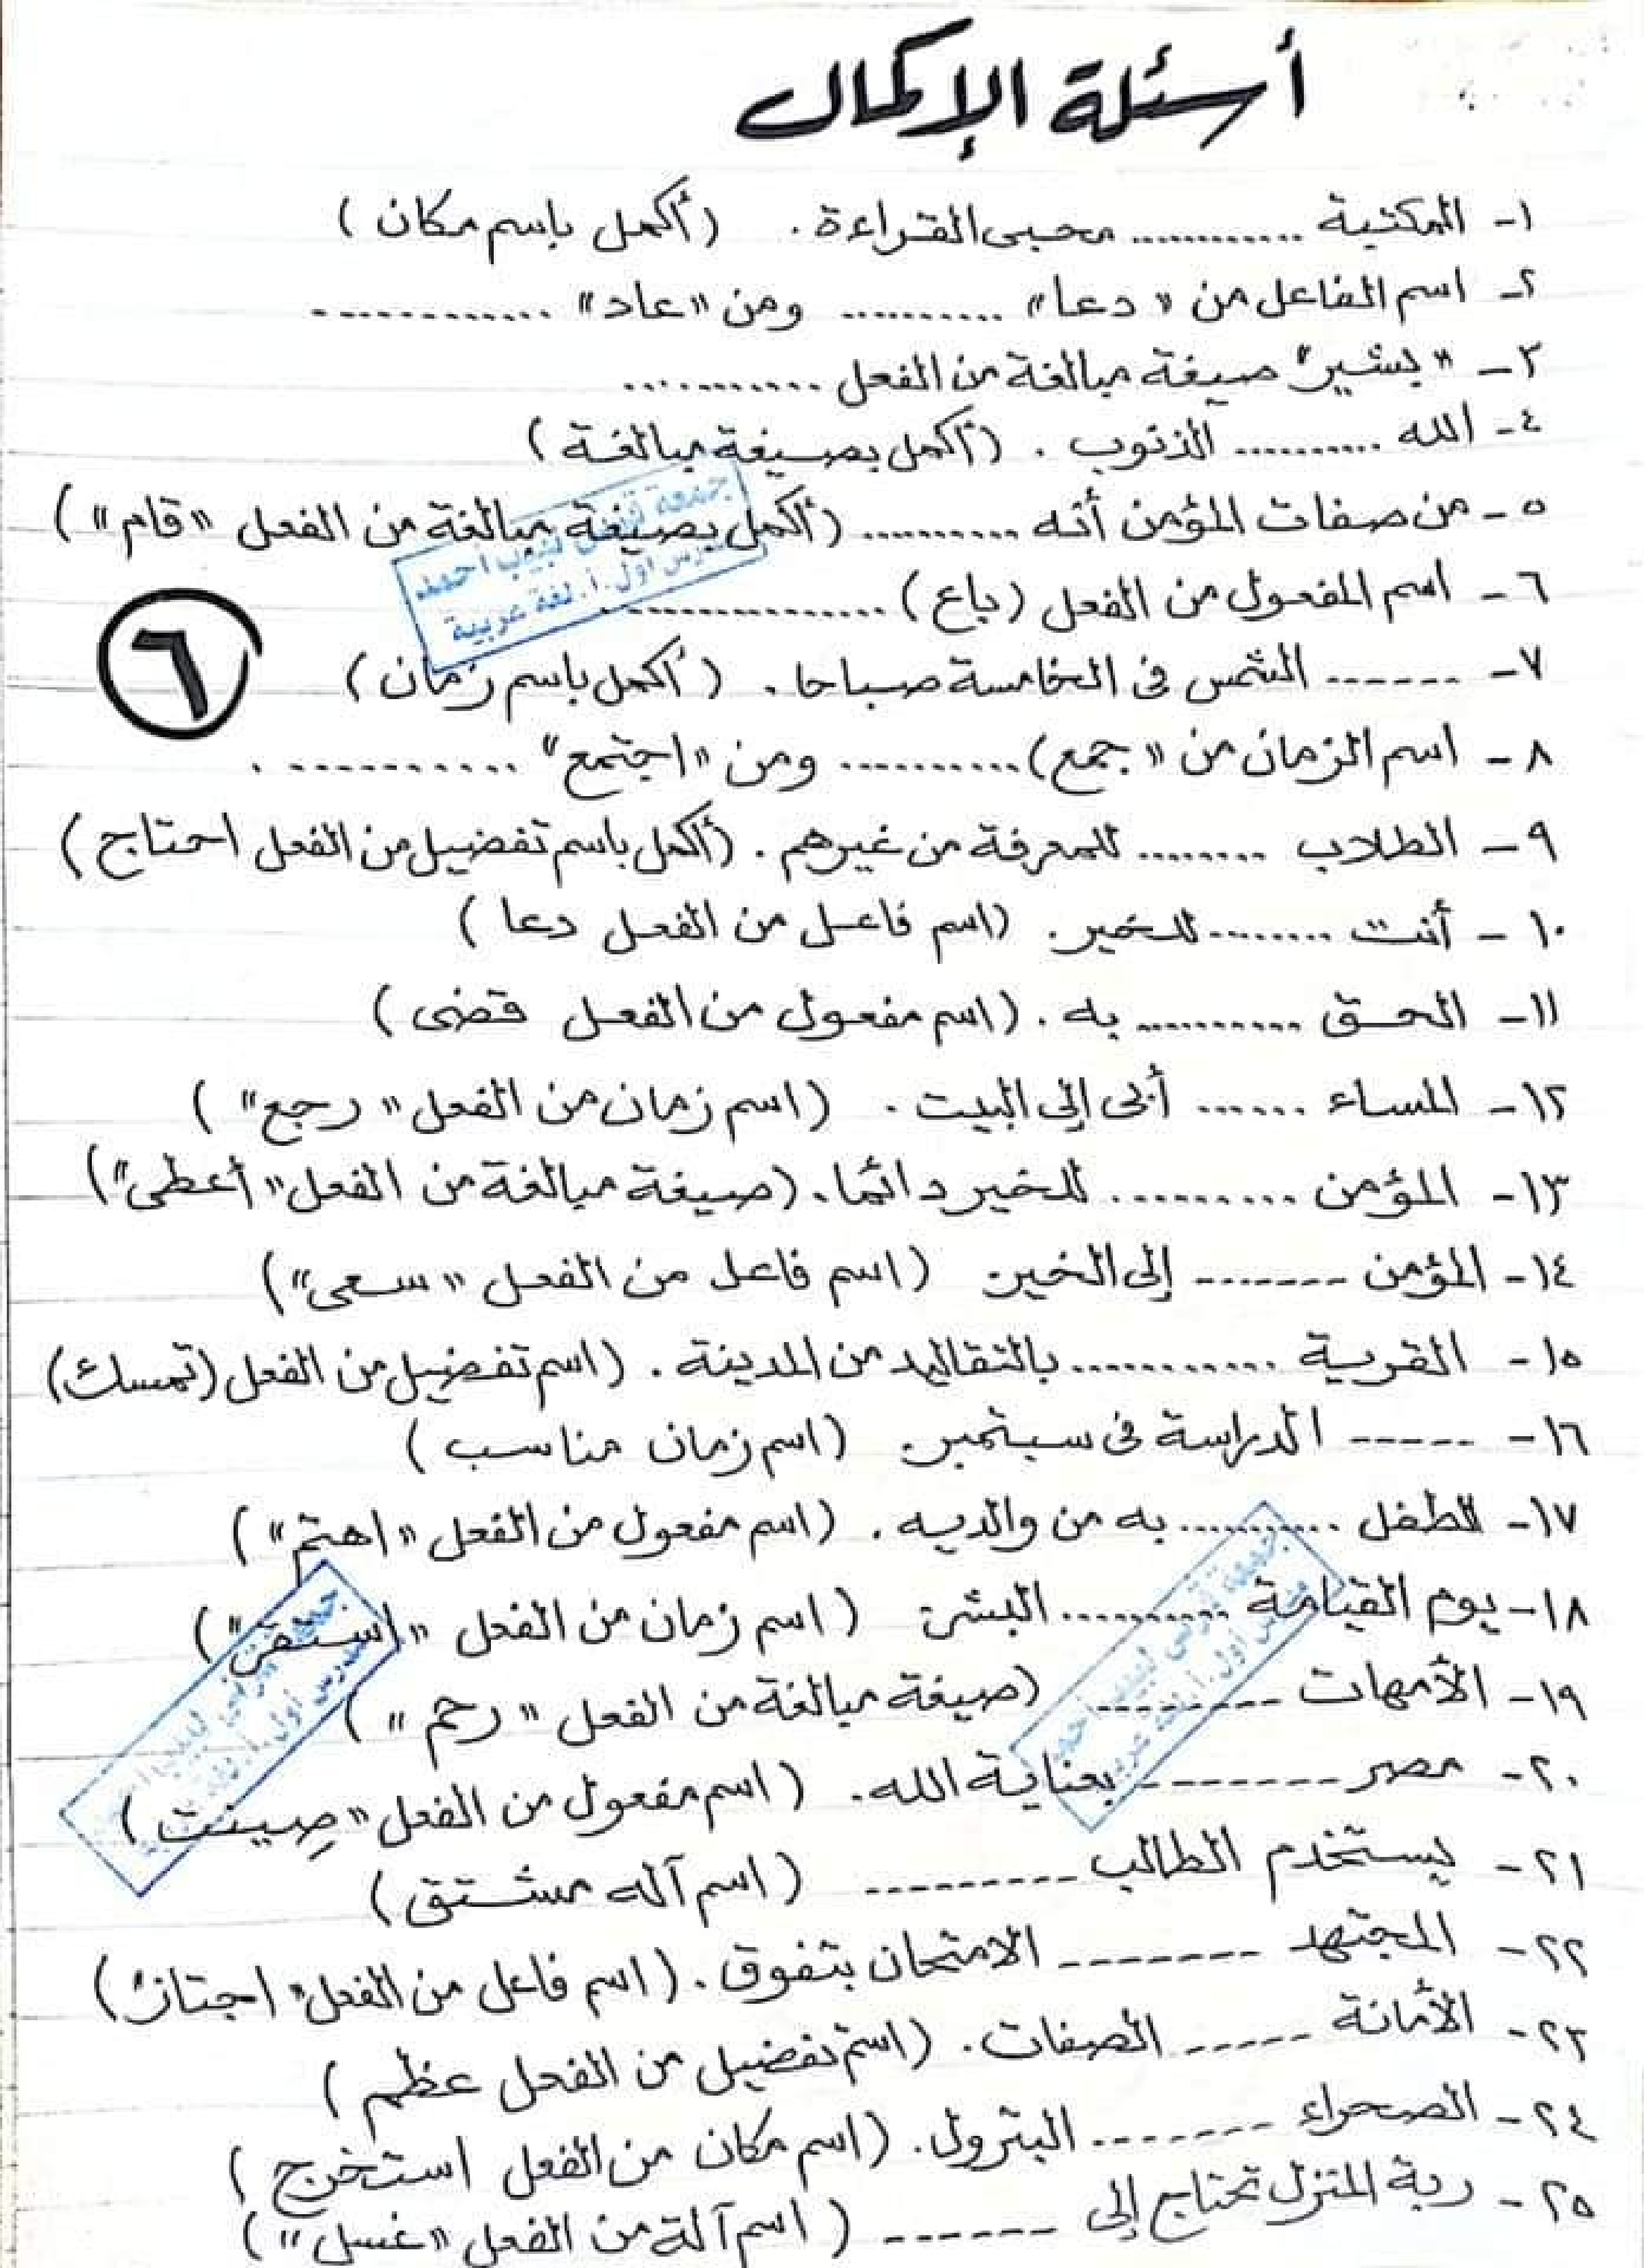 أسئلة الإكمال
١- المكتبة ............ محبى القراءة . (أكمل باسم مكان )
٢- اسم الفاعل من « دعا» .......... ومن «عاد» .............
٣- "بشير" صيغة مبالغة من الفعل ............
٤- الله ........... الذنوب . (أكمل بصيغة مبالغة )
٥- من صفات المؤمن أنه ........... (أكمل بصيغة مبالغة من الفعل «قام» )
جمعة لبيب أحمد
مدرس أول . أ . لغة عربية
٦- اسم المفعول من الفعل (باع) ..................
٦
٧- ------- الشمس فى الخامسة صباحا . (أكمل باسم زمان )
٨- اسم الزمان من « جمع) ........... ومن «اجتمع" ............ .
٩- الطلاب ......... للمعرفة من غيرهم . (أكمل باسم تفضيل من الفعل احتاج )
١٠- أنت ......... للخير. (اسم فاعل من الفعل دعا )
١١- الحق ........... به . (اسم مفعول من الفعل قضى )
١٢- المساء ...... أبى إلى البيت . (اسم زمان من الفعل « رجع" )
١٣- المؤمن .......... للخير دائما. (صيغة مبالغة من الفعل « أعطى")
١٤- المؤمن ------- إلى الخير. (اسم فاعل من الفعل « سعى" )
١٥- القرية ............ بالتقاليد من المدينة . (اسم تفضيل من الفعل (تمسك)
١٦- ----- الدراسة فى سبتمبر. (اسم زمان مناسب )
١٧- الطفل ........... به من والديه . (اسم مفعول من الفعل « اهتم" )
١٨- يوم القيامة ........... البشر. (اسم زمان من الفعل « استقر" )
١٩- الأمهات --------- (صيغة مبالغة من الفعل « رحم » )
لبيب أحمد
مدرس أول . أ . لغة عربية
لبيب
مدرس أول . أ
٢٠- مصر -------- بعناية الله. (اسم مفعول من الفعل « صِينت )
٢١- يستخدم الطالب --------- (اسم آله مشتق )
٢٢- المجتهد -------- الامتحان بتفوق. (اسم فاعل من الفعل" اجتاز" )
٢٣- الأمانة ------ الصفات. (اسم تفضيل من الفعل عظم )
٢٤- الصحراء -------- البترول. (اسم مكان من الفعل استخرج )
٢٥- ربة المنزل تحتاج إلى ------- (اسم آلة من الفعل « غسل» )